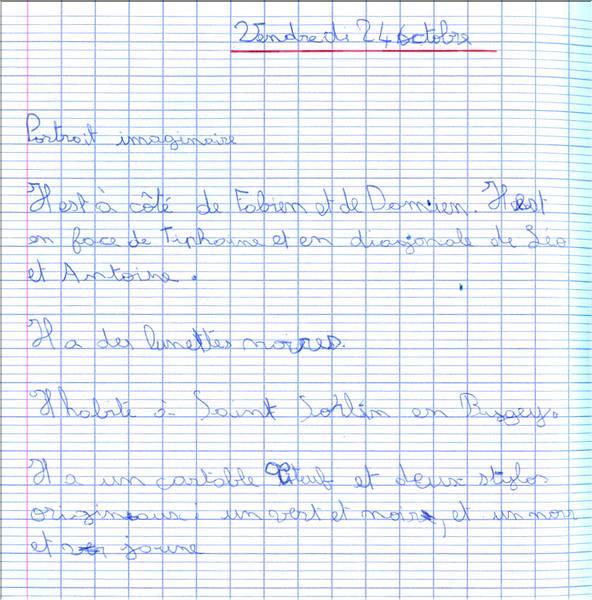 Vendredi 24 octobre
Portrait imaginaire
Il est à côté de Fabien et de Damien. Il est
en face de Tiphaine et en diagonale de Léo
et Antoine.
Il a des lunettes noires.
Il habite à Saint Sorlin en Bugey.
Il a un cartable et deux stylos
originaux : un vert et noir, et un noir
et jaune